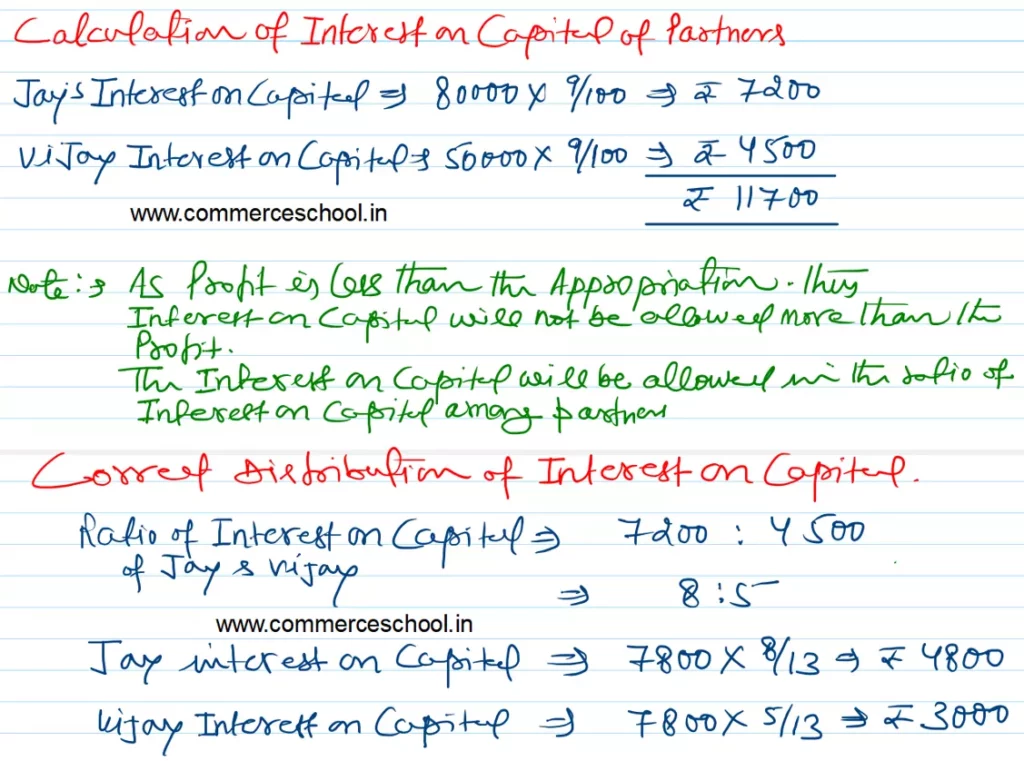 Calculation of Interest on Capital of Partners
Jay's Interest on Capital ⇒ 80000 × 9/100 ⇒ ₹ 7200
Vijay Interest on Capital ⇒ 50000 × 9/100 ⇒ ₹ 4500
₹ 11700
www.commerceschool.in
Note:⇒ As Profit is less than the Appropriation. this
Interest on Capital will not be allowed more than the
Profit.
The Interest on Capital will be allowed in the ratio of
Interest on Capital among partners
Correct Distribution of Interest on Capital.
Ratio of Interest on Capital ⇒ 7200 : 4500
of Jay & Vijay
⇒ 8 : 5
www.commerceschool.in
Jay interest on Capital ⇒ 7800 × 8/13 ⇒ ₹ 4800
Vijay Interest on Capital ⇒ 7800 × 5/13 ⇒ ₹ 3000